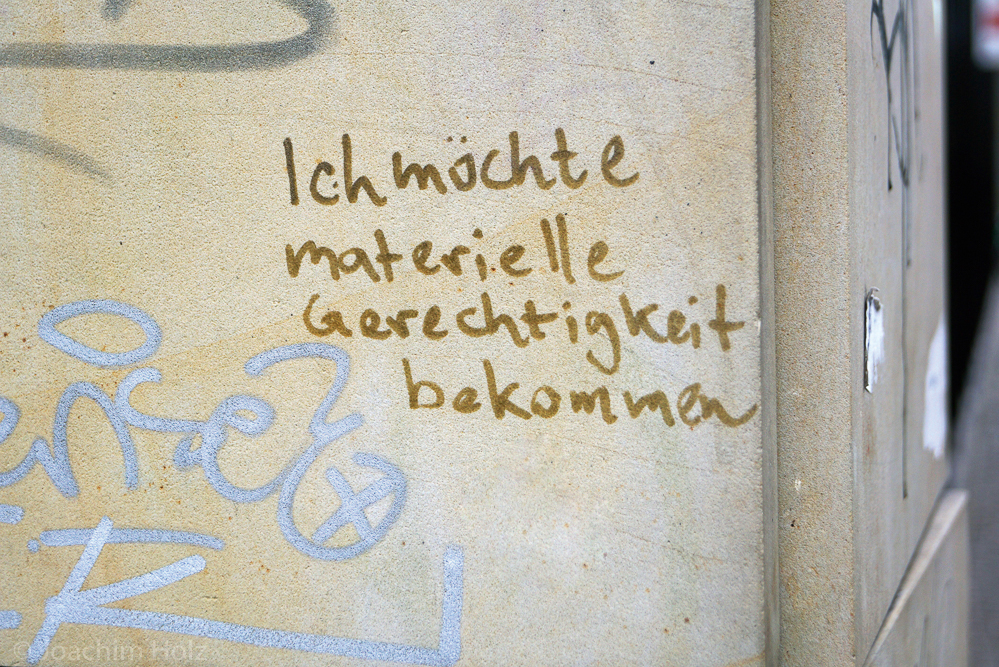 Ich möchte
materielle
Gerechtigkeit
bekommen
©Joachim Holz